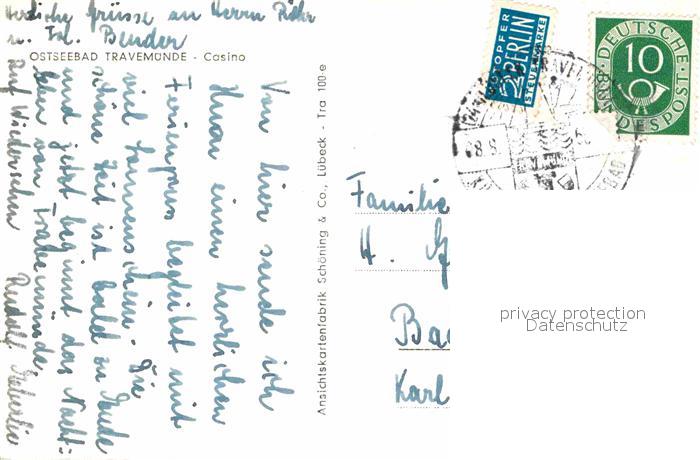 Herzliche Grüsse an Herrn
u. Frl. Bender
OSTSEEBAD TRAVEMÜNDE - Casino
Von hier sende ich
Ihnen einen herrlichen
Feriengruss begleitet mit
viel Sonnenschein. Die
schöne Zeit ist bald zu Ende
und jetzt beginnt das
leben von Travemünde.
auf Wiedersehn Rudolf
Ansichtskartenfabrik Schöning & Co., Lübeck - Tra 100·e
NOTOPFER
2 BERLIN
STEUERMARKE
DEUTSCHE
10
BUNDESPOST
Familie
H.
Ba
Karl
privacy protection
Datenschutz